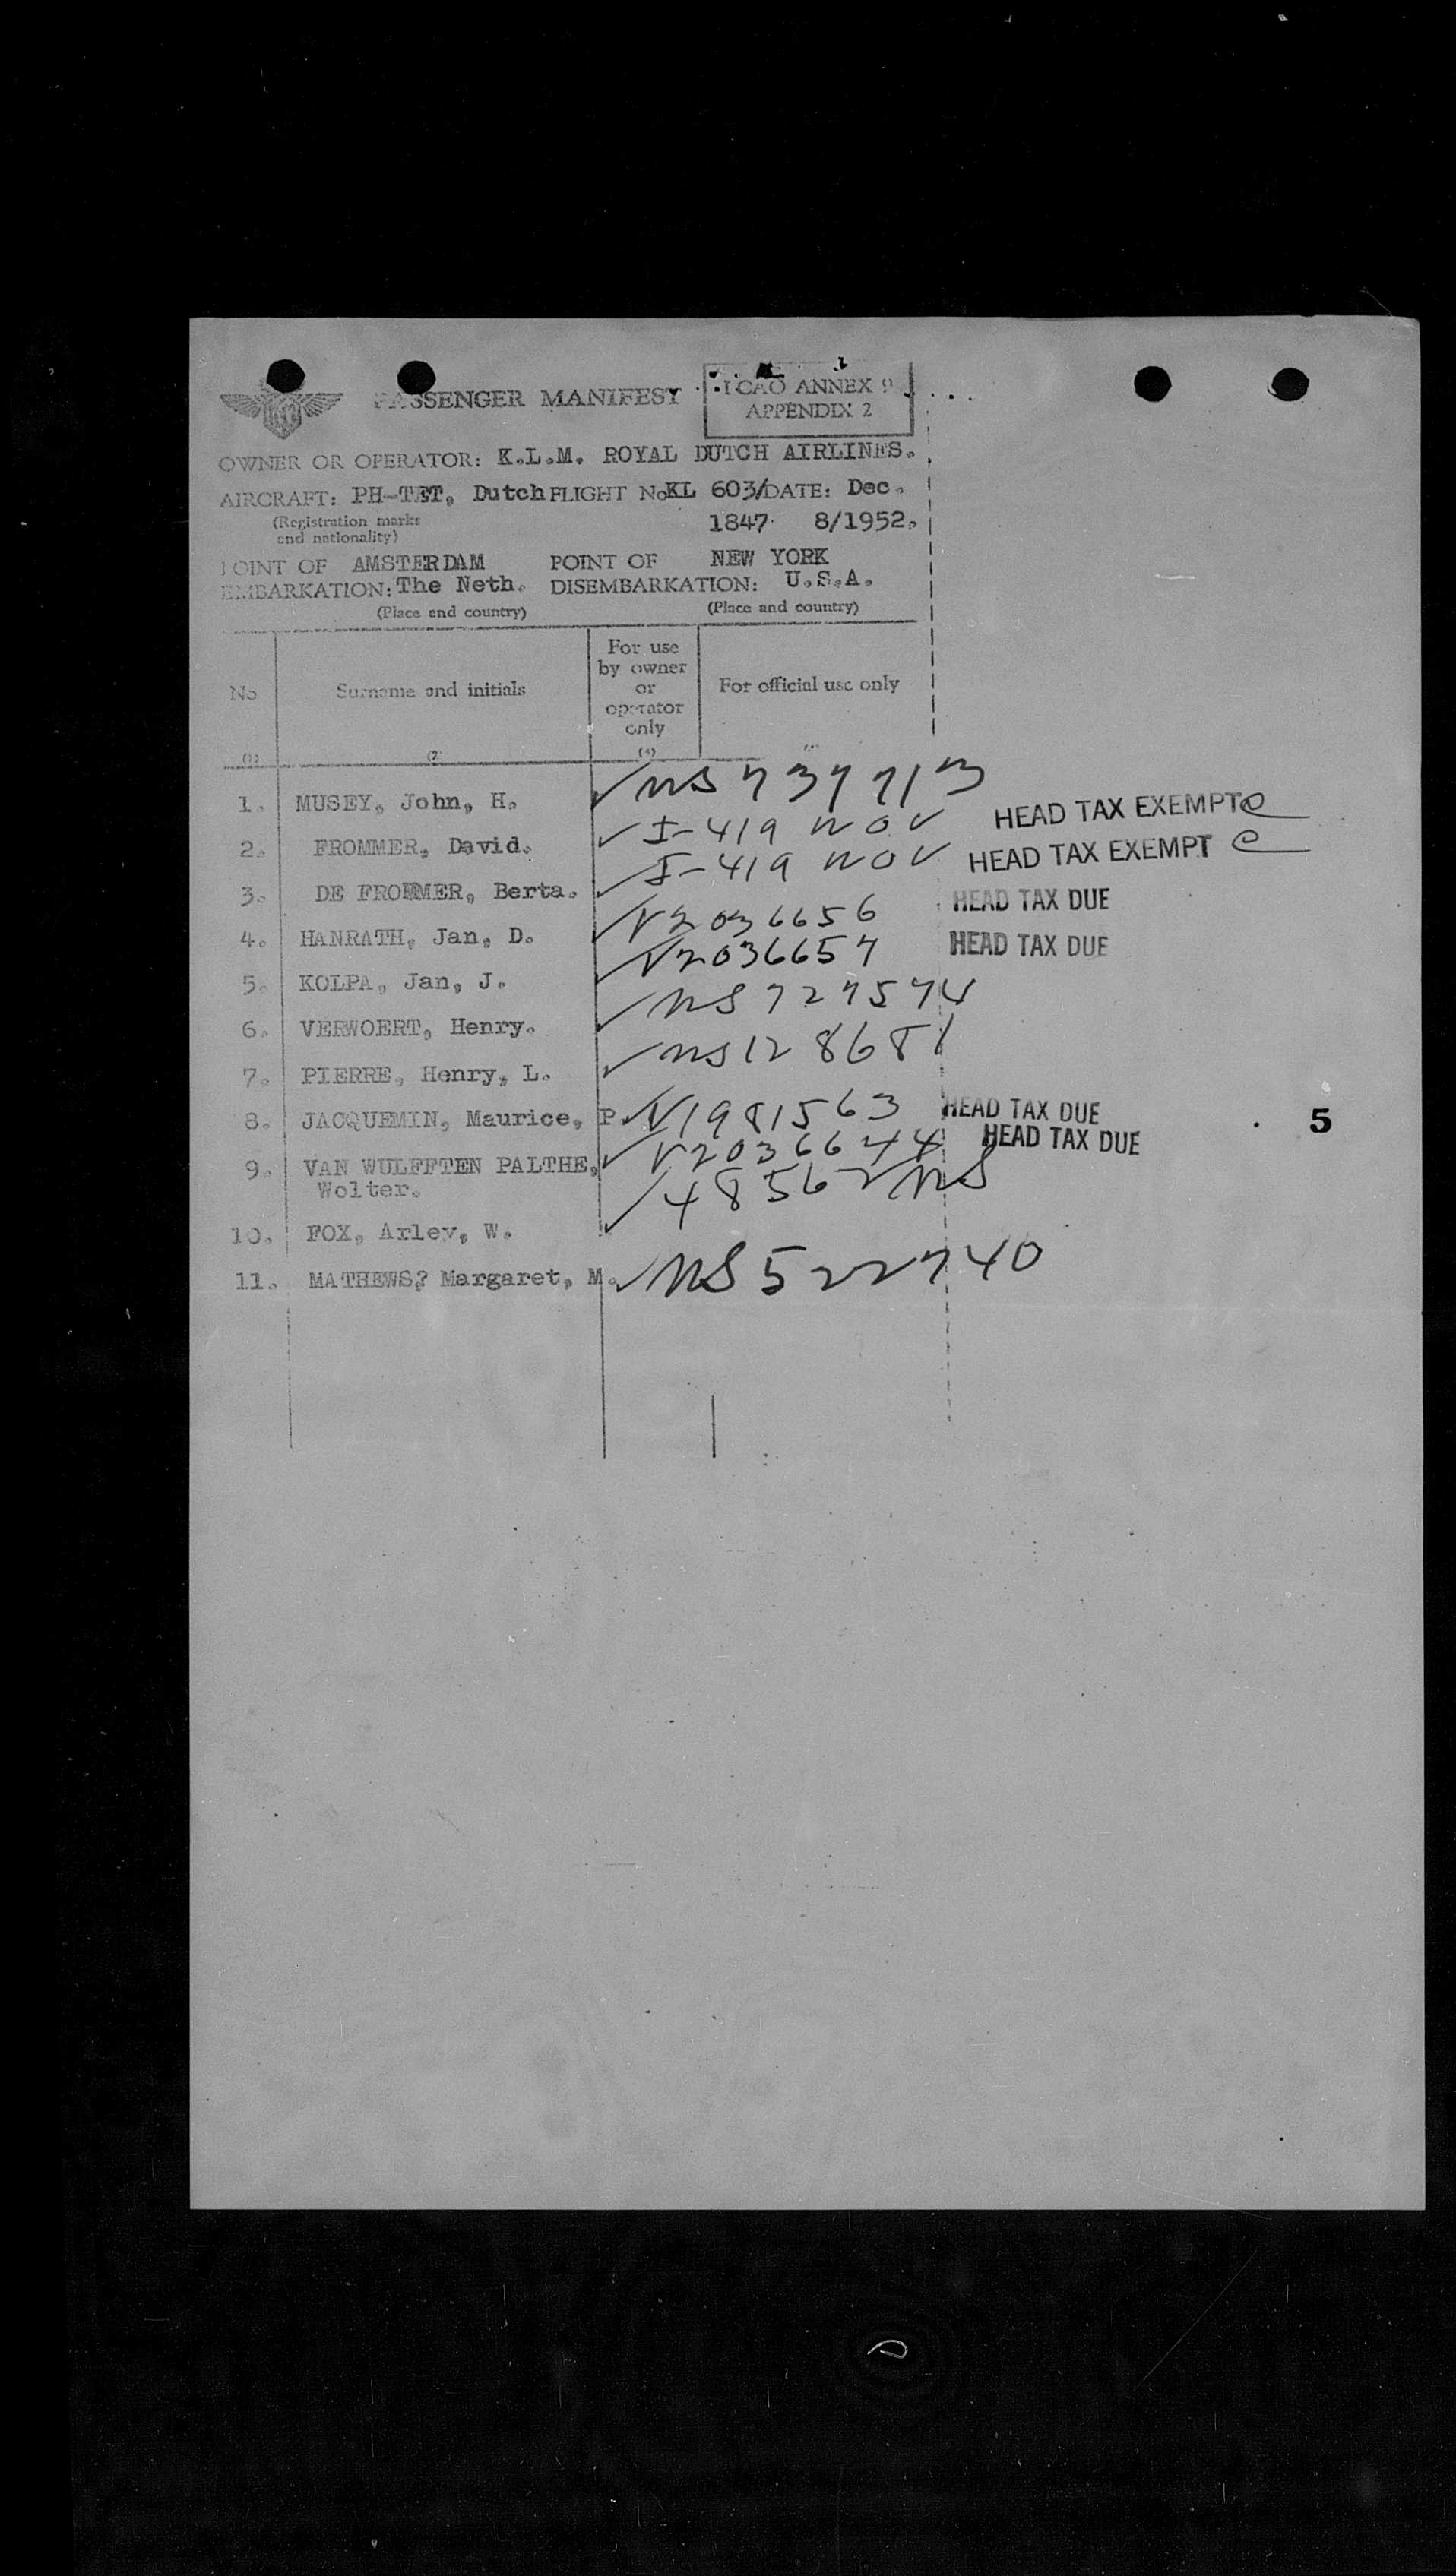 PASSENGER MANIFEST
ICAO ANNEX 9
APPENDIX 2
OWNER OR OPERATOR: K.L.M. ROYAL DUTCH AIRLINES.
AIRCRAFT: PH-TET, Dutch FLIGHT No KL 603/ DATE: Dec.
(Registration marks and nationality) 1847 8/1952.
POINT OF EMBARKATION: AMSTERDAM The Neth. POINT OF DISEMBARKATION: NEW YORK U.S.A.
(Place and country) (Place and country)
No Surname and initials For use by owner or operator only For official use only
(1) (2 (4)
1. MUSEY, John, H. ✓ NS 737713
2. FROMMER, David. ✓ I-419 NOV HEAD TAX EXEMPT
3. DE FROMMER, Berta. ✓ I-419 NOV HEAD TAX EXEMPT
4. HANRATH, Jan, D. ✓ V2036656 HEAD TAX DUE
5. KOLPA, Jan, J. ✓ V2036657 HEAD TAX DUE
6. VERWOERT, Henry. ✓ NS 727574
7. PIERRE, Henry, L. ✓ NS 128681
8. JACQUEMIN, Maurice, P. ✓ V1981563 HEAD TAX DUE
5
9. VAN WULFFTEN PALTHE, ✓ V2036644 HEAD TAX DUE
Wolter.
10. FOX, Arley, W. ✓ 48562 NS
11. MATHEWS? Margaret, M. ✓ NS 522740